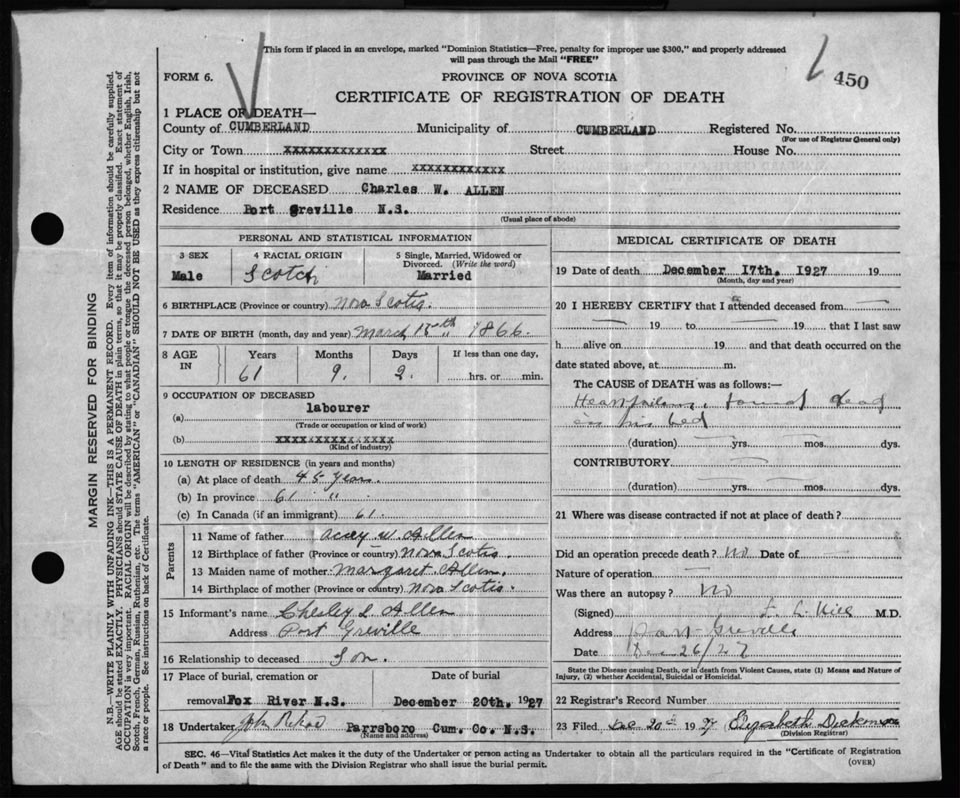 This form if placed in an envelope, marked "Dominion Statistics—Free, penalty for improper use $300," and properly addressed
will pass through the Mail "FREE"
FORM 6.
PROVINCE OF NOVA SCOTIA
450
CERTIFICATE OF REGISTRATION OF DEATH
1 PLACE OF DEATH—
County of CUMBERLAND Municipality of CUMBERLAND Registered No.
(For use of Registrar General only)
City or Town XXXXXXXXXXXXX Street House No.
If in hospital or institution, give name XXXXXXXXXXXX
2 NAME OF DECEASED Charles W. ALLEN
Residence Port Greville N.S.
(Usual place of abode)
PERSONAL AND STATISTICAL INFORMATION
3 SEX 4 RACIAL ORIGIN 5 Single, Married, Widowed or
Divorced. (Write the word)
Male Scotch Married
6 BIRTHPLACE (Province or country) Nova Scotia
7 DATE OF BIRTH (month, day and year) March 15th 1866
8 AGE IN Years Months Days If less than one day,
61 9. 2. hrs. or min.
9 OCCUPATION OF DECEASED
(a) labourer
(Trade or occupation or kind of work)
(b) XXXXXXXXXXXXXXXX
(Kind of industry)
10 LENGTH OF RESIDENCE (in years and months)
(a) At place of death 45 years.
(b) In province 61 "
(c) In Canada (if an immigrant) 61.
Parents
11 Name of father W. Allen
12 Birthplace of father (Province or country) Nova Scotia.
13 Maiden name of mother Margaret Allen.
14 Birthplace of mother (Province or country) Nova Scotia.
15 Informant's name Chesley L Allen
Address Port Greville
16 Relationship to deceased Son.
17 Place of burial, cremation or Date of burial
removal Fox River N.S. December 20th. 1927
18 Undertaker John Parrsboro Cum. Co. N.S.
(Name and address)
MEDICAL CERTIFICATE OF DEATH
19 Date of death December 17th. 1927 19
(Month, day and year)
20 I HEREBY CERTIFY that I attended deceased from
19 to 19 that I last saw
h alive on 19 and that death occurred on the
date stated above, at m.
The CAUSE of DEATH was as follows:—
Heart failure, found dead
in his bed
(duration) yrs. mos. dys.
CONTRIBUTORY
(duration) yrs. mos. dys.
21 Where was disease contracted if not at place of death?
Did an operation precede death? No Date of
Nature of operation
Was there an autopsy? No
(Signed) Hill M.D.
Address Port Greville
Date Dec 26/27
State the Disease causing Death, or in death from Violent Causes, state (1) Means and Nature of
Injury, (2) whether Accidental, Suicidal or Homicidal.
22 Registrar's Record Number
23 Filed Dec 20th 1927 Elizabeth
(Division Registrar)
SEC. 46—Vital Statistics Act makes it the duty of the Undertaker or person acting as Undertaker to obtain all the particulars required in the "Certificate of Registration
of Death" and to file the same with the Division Registrar who shall issue the burial permit.
(OVER)
MARGIN RESERVED FOR BINDING
N.B.—WRITE PLAINLY WITH UNFADING INK—THIS IS A PERMANENT RECORD. Every item of information should be carefully supplied.
AGE should be stated EXACTLY. PHYSICIANS should STATE CAUSE OF DEATH in plain terms, so that it may be properly classified. Exact statement of
OCCUPATION is very important. RACIAL ORIGIN will be described by stating to what people or tongue the deceased person belonged, whether English, Irish,
Scotch, French, German, Russian, Ruthenian, etc. The terms "AMERICAN" or "CANADIAN" SHOULD NOT BE USED as they express citizenship but not
a race or people. See instructions on back of Certificate.